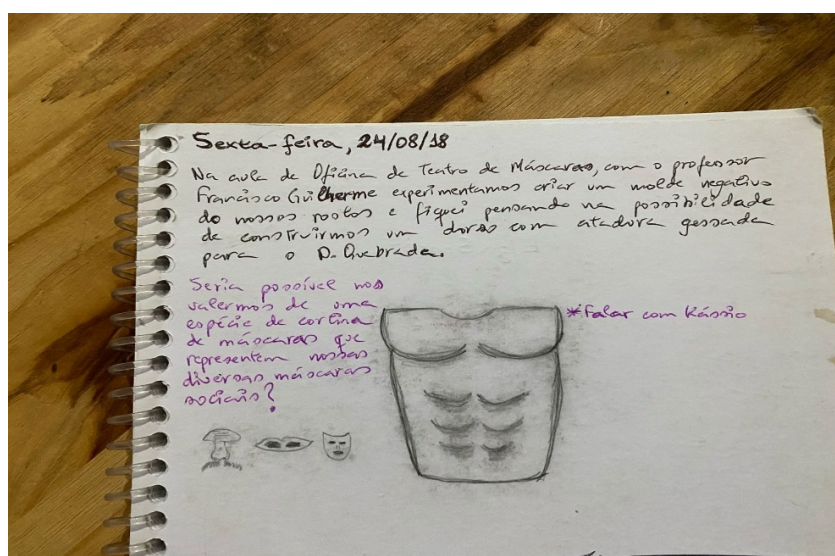 Sexta-feira, 24/08/18
Na aula de Oficina de Teatro de Máscaras, com o professor
Francisco Guilherme experimentamos criar um molde negativo
do nossos rostos e fiquei pensando na possibilidade
de construirmos um dorso com atadura gessada
para o D. Quebrada.
Seria possível nos
valermos de uma
espécie de cortina
de máscaras que
representem nossas
diversas máscaras
sociais?
*Falar com Kássio